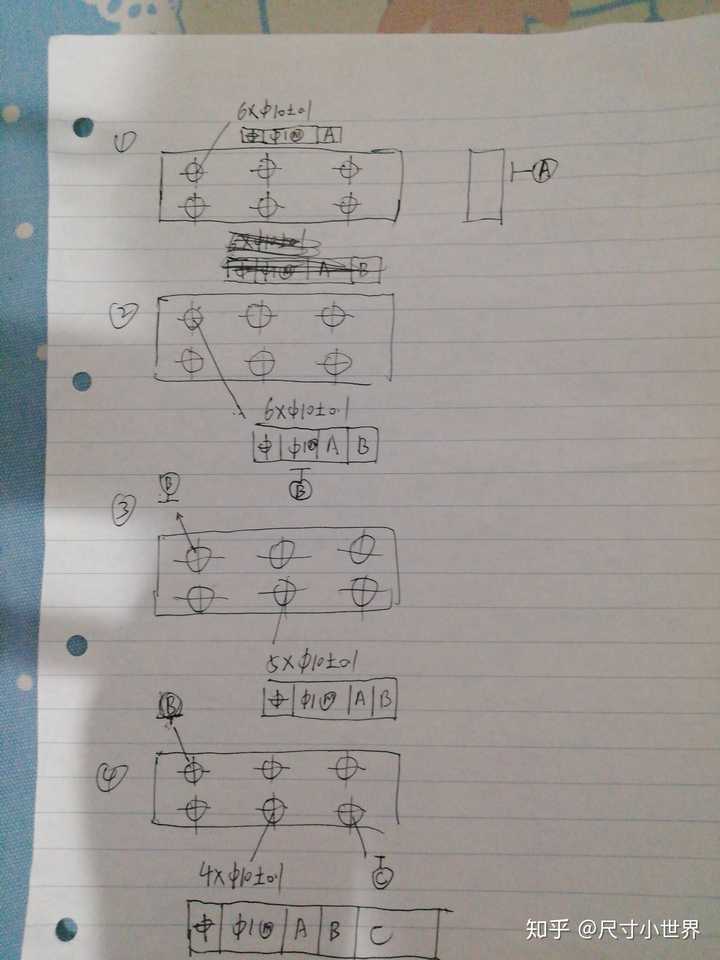 6×ϕ10±0.1
⌖ ϕ1Ⓜ A
①
A
②
6×ϕ10±0.1
⌖ ϕ1Ⓜ A B
B
B
③
5×ϕ10±0.1
⌖ ϕ1Ⓜ A B
B
④
4×ϕ10±0.1
C
⌖ ϕ1Ⓜ A B C
知乎 @尺寸小世界